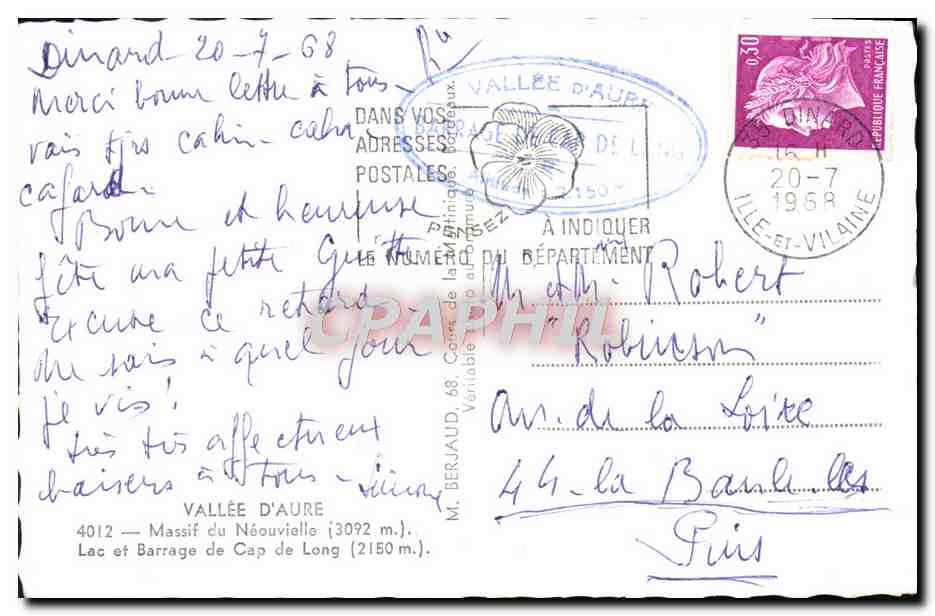 Dinard 20-7-68
Merci bonne lettre à tous -
vais tjrs cahin-caha,
cafard -
Bonne et heureuse
fête ma petite
Excuse ce retard -
ne sais à quel jour
je vis !
très très affectueux
baisers à tous - Simone
VALLÉE D'AURE
4012 — Massif du Néouvielle (3092 m.).
Lac et Barrage de Cap de Long (2150 m.).
M. BERJAUD, 68, Cours de la Martinique, Bordeaux.
Véritable au bromure
VALLÉE D'AURE
BARRAGE DE LONG
2150
DANS VOS
ADRESSES
POSTALES
PENSEZ
À INDIQUER
LE NUMÉRO DU DÉPARTEMENT
0,30
POSTES
RÉPUBLIQUE FRANÇAISE
35 DINARD
16 H
20-7
1968
ILLE-ET-VILAINE
M et Mme Robert
"Robinson"
av. de la Loire
44-la Baule-les
Pins
CPAPHIL